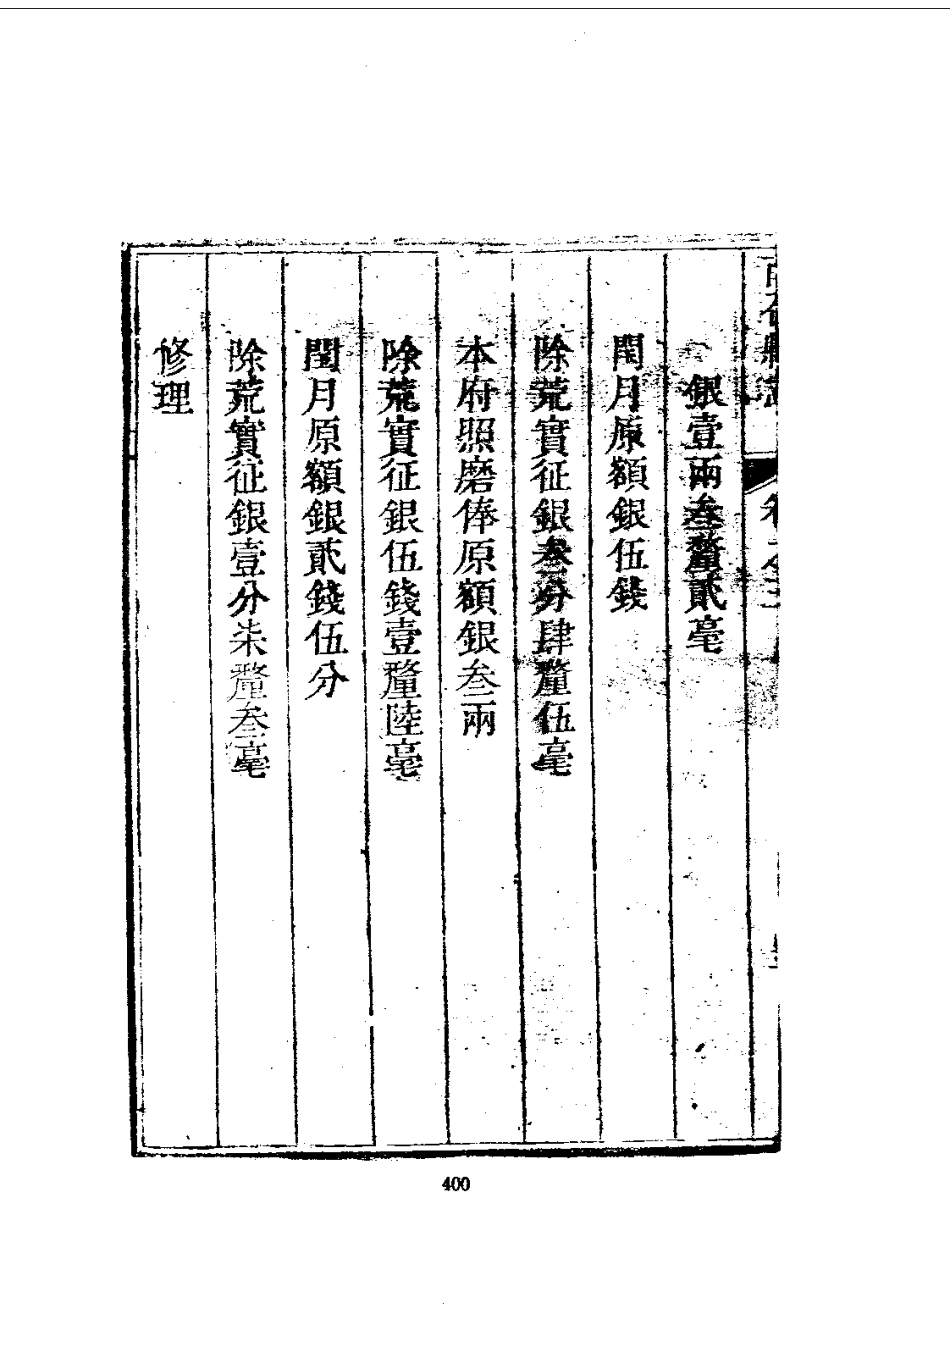 銀壹兩叁釐貳毫
閏月原額銀伍錢
除荒實征銀叁分肆釐伍毫
本府照磨俸原額銀叁兩
除荒實征銀伍錢壹釐陸毫
閏月原額銀貳錢伍分
除荒實征銀壹分柒釐叁毫
修理
400